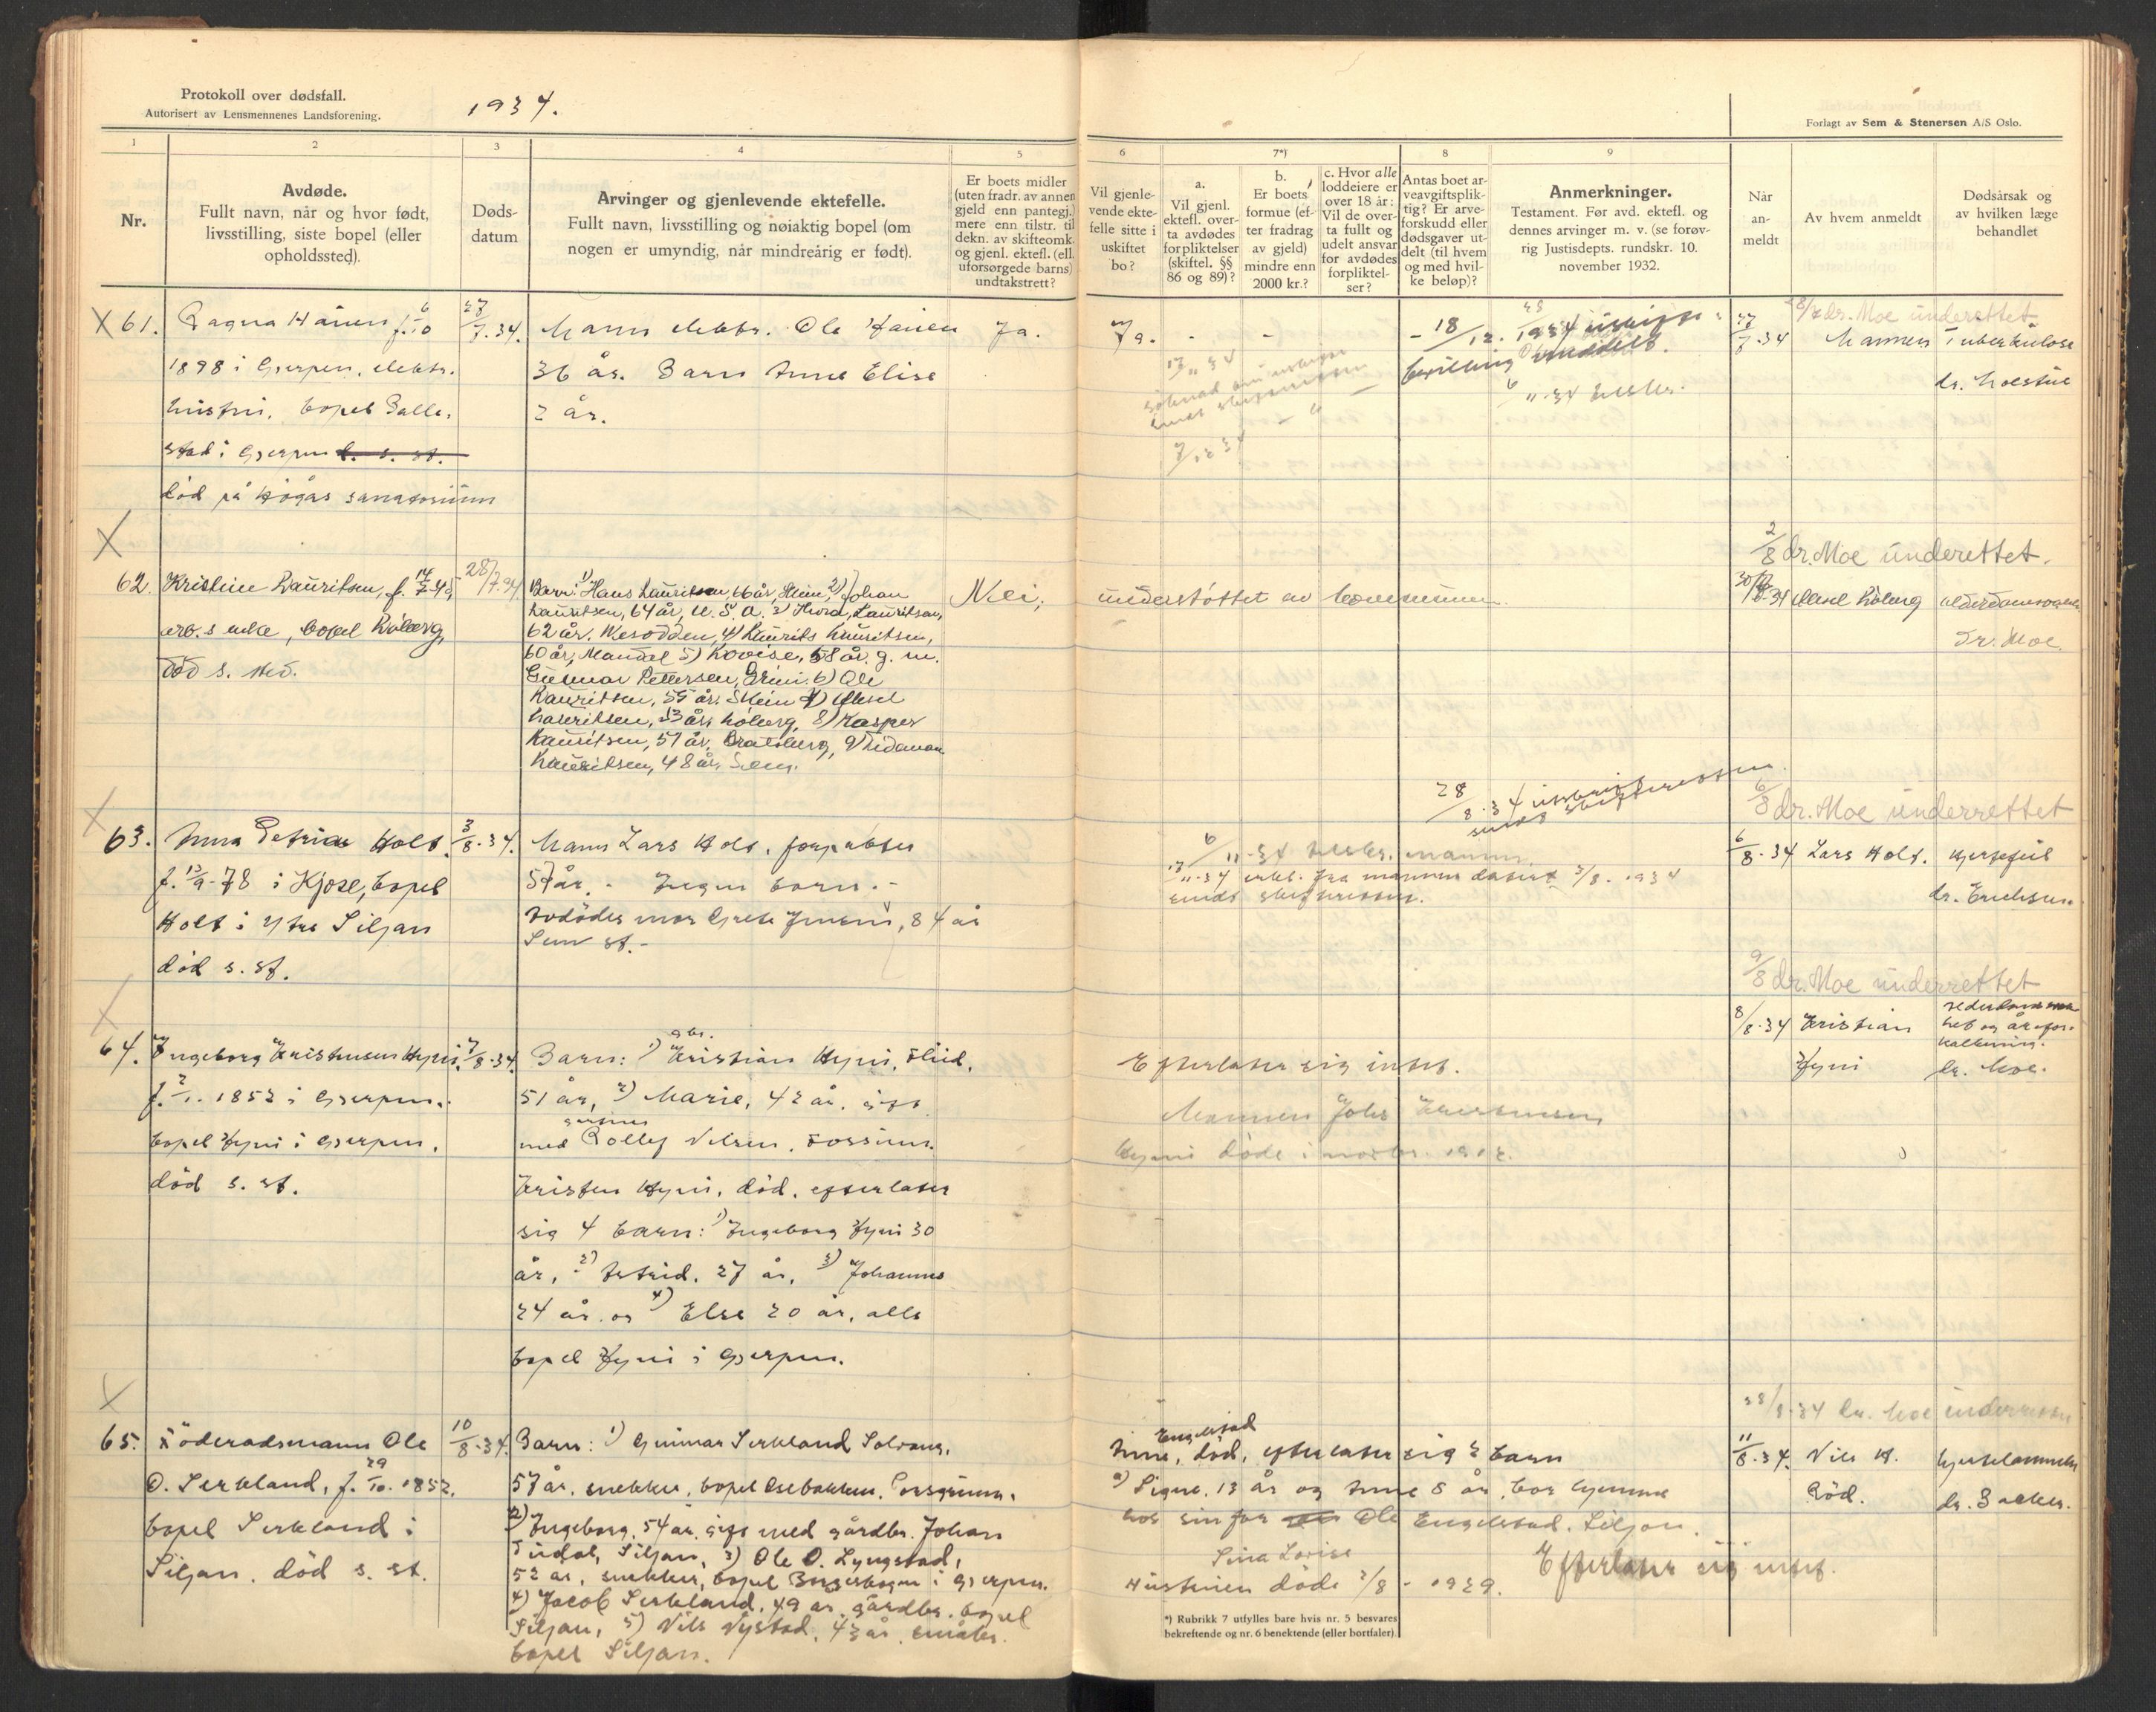 Protokoll over dødsfall.
Autorisert av Lensmennenes Landsforening.
1934.
Forlagt av Sem & Stenersen A/S Oslo.
1
2
3
4
5
6
7*)
8
9
Nr.
Avdøde.
Fullt navn, når og hvor født,
livsstilling, siste bopel (eller
opholdssted).
Døds-
datum
Arvinger og gjenlevende ektefelle.
Fullt navn, livsstilling og nøiaktig bopel (om
nogen er umyndig, når mindreårig er født).
Er boets midler
(uten fradr. av annen
gjeld enn pantegj.)
mere enn tilstr. til
dekn. av skifteomk.
og gjenl. ektefl. (ell.
uforsørgede barns)
undtakstrett?
Vil gjenle-
vende ekte-
felle sitte i
uskiftet
bo?
a.
Vil gjenl.
ektefl. over-
ta avdødes
forpliktelser
(skiftel. §§
86 og 89)?
b.
Er boets
formue (ef-
ter fradrag
av gjeld)
mindre enn
2000 kr.?
c. Hvor alle
loddeiere er
over 18 år:
Vil de over-
ta fullt og
udelt ansvar
for avdødes
forpliktel-
ser?
Antas boet ar-
veavgiftsplik-
tig? Er arve-
forskudd eller
dødsgaver ut-
delt (til hvem
og med hvil-
ke beløp)?
Anmerkninger.
Testament. Før avd. ektefl. og
dennes arvinger m. v. (se forøv-
rig Justisdepts. rundskr. 10.
november 1932.
Når
an-
meldt
Av hvem anmeldt
Dødsårsak og
av hvilken læge
behandlet
X 61.
Ragna Hanen f. 6/10
1898 i Gjerpen, elektr.
hustru, bopel Balle-
stad i Gjerpen
død på Høgås sanatorium
27/7.34.
Mann elektr. Ole Hanen
36 år. Barn Anne Elise
2 år.
Ja.
Ja. - - -
18/12. 1934 uskifte
bevilling meddelt.
6/11-34
17/11 34
7/12 34
dr. Moe underettet
27/7-34
Mannen
Tuberkulose
X
62.
Kristine Lauritsen, f. 14/7-45
arb.s enke, bopel Løberg,
død s. sted.
28/7.34
Barn: 1) Hans Lauritsen, 66 år, Skien, 2) Johan
Lauritsen, 64 år, U. S. A. 3) Thora Lauritsen,
62 år. Nesodden, 4) Laurits Lauritsen,
60 år, Mandal 5) Lovise, 58 år. g. m.
Gunnar Pettersen, Grini. 6) Ole
Lauritsen, 55 år. Skien 7) Aksel
Lauritsen, 53 år, Løberg, 8) Kasper
Lauritsen, 51 år, Bratsberg, 9)
Lauritsen, 48 år,
Nei,
understøttet av kommunen.
2/8 dr. Moe underettet.
30/7-34 Aksel Løberg
dr. Moe.
X
63.
Anna Petrine Holt.
f. 13/9-78 i Kjose, bopel
Holt i ytre Siljan
død s. st.
3/8.34.
Mann Lars Holt, forpakter
57 år. - Ingen barn. -
Avdødes mor Grete Jensen, 84 år
28/8.34
sendt skifteretten
6/11-34
17/11-34 erkl. fra mannen datert 3/8. 1934
sendt skifteretten.
6/8 dr. Moe underrettet
6/8.34
Lars Holt.
Hjertefeil
dr. Erichsen.
X
64.
Ingeborg Kristensen Hyni.
f. 2/1. 1852 i Gjerpen.
bopel Hyni i Gjerpen.
død s. st.
7/8.34.
Barn: 1) gbr. Kristian Hyni,
51 år, 2) Marie, 42 år, gift
med Rollef Nilsen, Fossum.
Kristen Hyni, død, efterlater
sig 4 barn: 1) Ingeborg Hyni 30
år, 2) Astrid. 27 år, 3) Johannes
24 år og 4) Else 20 år, alle
bopel Hyni i Gjerpen.
Efterlater sig intet.
Mannen Johs Kristensen
Hyni døde i novbr. 1912.
9/8 dr. Moe underrettet
8/8.34
Kristian
Hyni
alderdomssvak-
het og årefor-
kalkning.
dr. Moe.
X
65.
Føderådsmann Ole
O. Serkland, f. 29/10. 1852.
bopel Serkland i
Siljan. død s. st.
10/8.34.
Barn: 1) Gunnar Serkland Solvang,
57 år, snekker, bopel Osebakken, Porsgrunn.
2) Ingeborg, 54 år, gift med gårdbr. Johan
Tudal, Siljan, 3) Ole O. Lyngstad,
52 år, snekker, bopel i Gjerpen.
4) Jacob Serkland, 49 år, gårdbr. bopel
Siljan, 5) Nils Nystad, 43 år, småbr.
bopel Siljan.
Engelstad
Anne, død, efterlater sig 2 barn
a) Signe, 13 år og Anne 8 år, bor hjemme
hos sin far Ole Engelstad, Siljan.
Sina Lovise
Hustruen døde 2/8 - 1929.
Efterlater sig intet.
dr. Moe underrettet
11/8.34.
Nils H.
Rød.
Hjertelammelse
dr. Backer.
*) Rubrikk 7 utfylles bare hvis nr. 5 besvares
bekreftende og nr. 6 benektende (eller bortfaler).